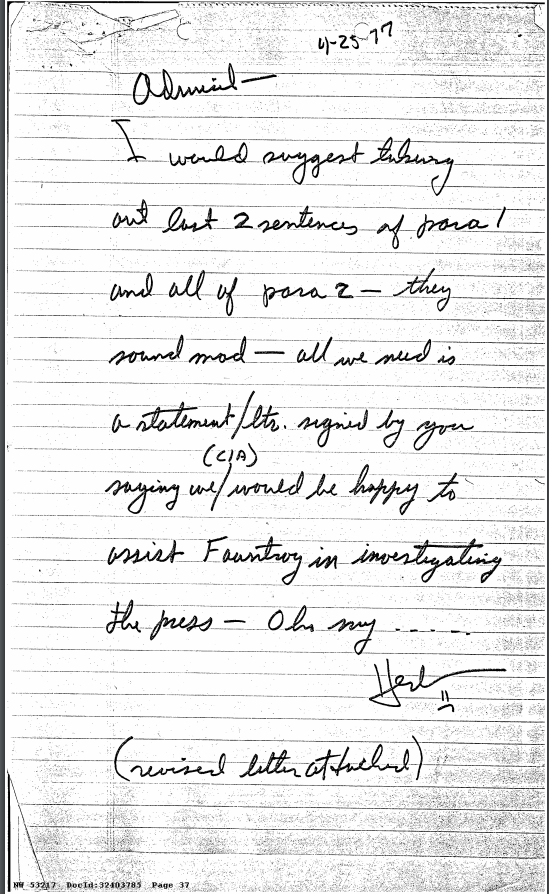 4-25-77
Admiral—
I would suggest taking
out last 2 sentences of para 1
and all of para 2 — they
sound mad — all we need is
a statement/ltr. signed by you
(CIA)
saying we/would be happy to
assist Fauntroy in investigating
the press — Oh my .....
Herb
(revised letter attached)
NW 53217 DocId:32403785 Page 37